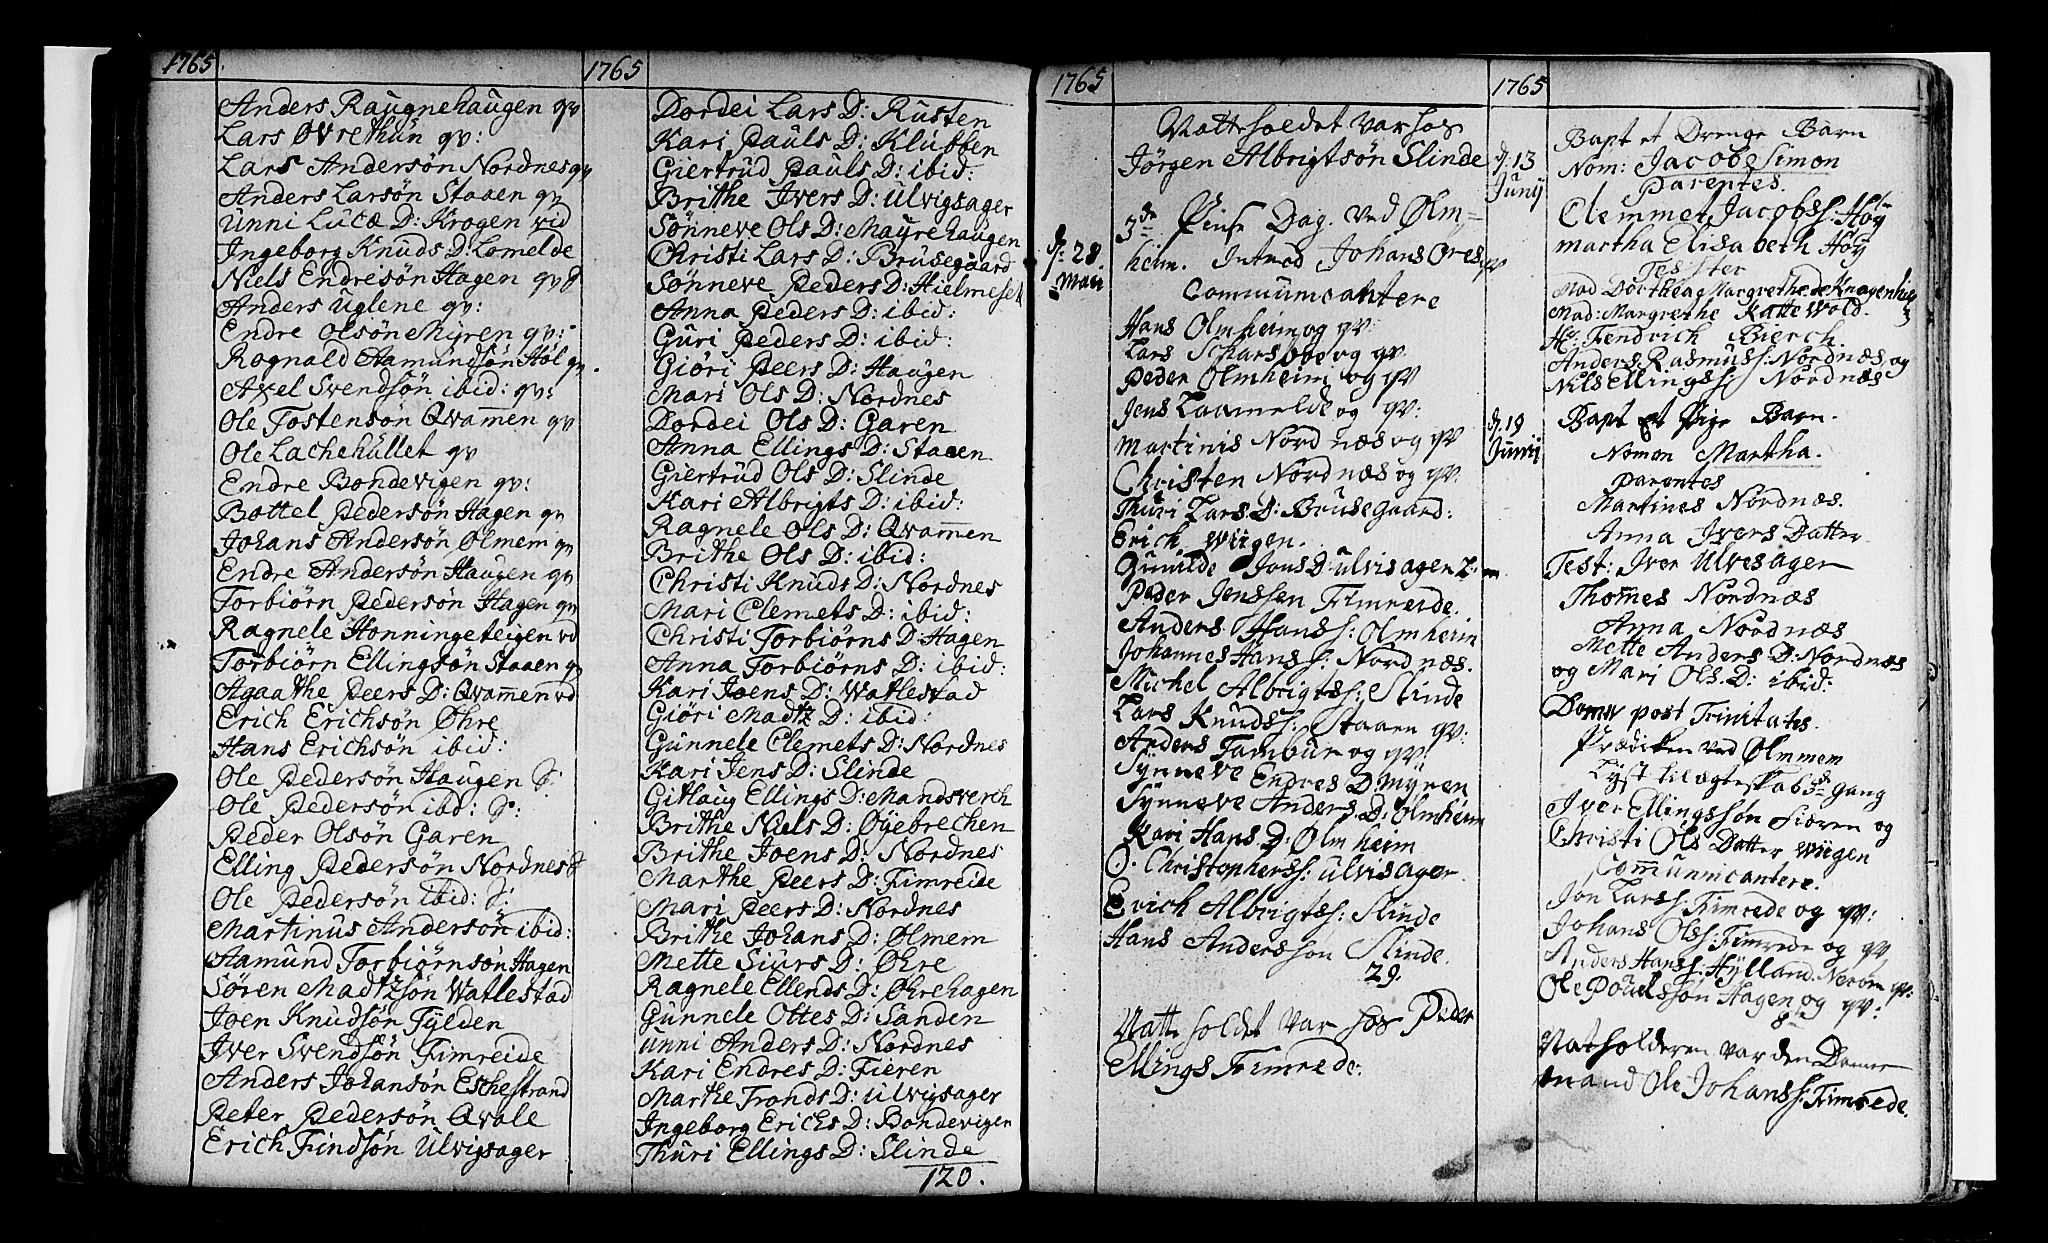 1765
Anders Raugnehaugen qv
Lars Øvrethun qv:
Lars Andersøn Nordnes qv
Anders Larsøn Staaen qv
Unni Lucæ D: Krogen vid
Ingeborg Knuds D: Lomelde
Niels Endresøn Hagen qv
Anders Uglene qv:
Endre Olsøn Myren qv:
Rognald Hamundsøn Høl qv.
Axel Svendsøn ibid: qv:
Ole Tostensøn Qvamen qv
Ole Lachehullet qv
Endre Bondevigen qv:
Bottel Pedersøn Hagen qv
Johans Andersøn Olmem qv
Endre Andersøn Haugen qv
Torbiørn Pedersøn Hagen qv
Ragnele Honningeteigen vd
Torbiørn Ellingsøn Staaen qv
Agaathe Peers D: Qvamen vd
Erich Erichsøn Øhre
Hans Erichsøn ibid:
Ole Pedersøn Haugen S:
Ole Pedersøn ibd: S:
Peder Olsøn Garen
Elling Pedersøn Nordnes S
Ole Pedersøn ibid: S:
Martinus Andersøn ibid:
Hamund Torbiørnsøn Hagen
Søren Madtzsøn Watlestad
Joen Knudsøn Tylden
Iver Svendsøn Fimreide
Anders Johansøn Eschestrand
Peter Pedersøn Qvale
Erich Findsøn Ulvigsager
1765
Dordei Lars D: Rusten
Kari Pauls D: Klubben
Giertrud Pauls D: ibid:
Brithe Ivers D: Ulvigsager
Sønneve Ols D: Mayrehaugen
Christi Lars D: Brusegaard
Sønneve Peders D: Hielmeset
Anna Peders D: ibid:
Guri Peders D: ibid:
Giøri Peers D: Haugen
Mari Ols D: Nordnes
Dordei Ols D: Garen
Anna Ellings D: Staaen
Giertrud Ols D: Slinde
Kari Albrigts D: ibid:
Ragnele Ols D: Qvamen
Brithe Ols D: ibid:
Christi Knuds D: Nordnes
Mari Clemets D: ibid:
Christi Torbiørns D: Hagen
Anna Torbiørns D: ibid:
Kari Joens D: Watlestad
Giøri Madtz D: ibid:
Gunnele Clemets D: Nordnes
Kari Jens D: Slinde
Gitlaug Ellings D: Mandsverch
Brithe Niels D: Øyebrechen
Brithe Joens D: Nordnes
Marthe Peers D: Fimreide
Mari Peers D: Nordnes
Brithe Johans D: Olmem
Mette Siurs D: Øhre
Ragnele Ellends D: Øhrehagen
Gunnele Ottes D: Sanden
Unni Anders D: Nordnes
Kari Endres D: Fieren
Marthe Tronds D: Ulvigsager
Ingeborg Erichs D: Bondevigen
Thuri Ellings D: Slinde
120.
1765
Natteholdet var hos
Jørgen Albrigtsøn Slinde
d: 28. Maii
3de Pinse Dag. ved Olm-
heim. Introd Johans Øres qv
Communicantere
Hans Olmheim og qv:
Lars Scharsborg qv
Peder Olmheim og qv
Jens Laamelde og qv:
Martinis Nordnæs og qv
Christen Nordnæs og qv:
Thuri Lars D: Brusegaard:
Erich Wiigen.
Gunilde Jons D: Ulvisagen
Peder Jenssen Fimreide.
Anders Hanss: Olmheim
Johannes Hans s: Nordnæs.
Michel Albrigts s: Slinde
Lars Knuds s: Staaen qv:
Anders Tambur og qv:
Synneve Endres D: Myren
Synneve Anders D: Olmheim
Kari Hans D: Olmheim
O. Christophers s: Ulvisager.
Erich Albrigts s: Slinde
Hans Anderssøn Slinde.
29.
Natteholdet var hos Peder
Ellings Fimrede.
1765
d: 13 Junii
Bapt et Drenge Barn
Nom: Jacob Simon
Parentes.
Clemmet Jacobs s: Høy
Martha Elisabeth Høy
Tester
Mad Dorthea Margrethe de Knagenhielm
Mad: Margrethe Kattewold.
Hr: Fendrich Bierch.
Anders Rasmus s: Nordnæs og
Nils Ellings s: Nordnæs
d: 19 Junii
Bapt et Pige Barn.
Nomen Martha.
Parentes
Martines Nordnæs.
Anna Ivers Datter
Test: Iver Ulvesager
Thomes Nordnæs
Anna Nordnæs
Mette Anders D: Nordnæs
og Mari Ols D: ibid:
Dom post Trinitatis
Prædiken ved Olmmem
Lyst til ægteskab 3de Gang
Iver Ellingssøn Fiøren og
Christi Ols Datter Wiigen
Communicantere.
Jon Lars s: Fimrede og qv:
Johans Ols s: Fimrede og qv
Anders Hans s: Hylland Nerøen qv:
Ole Pouelssøn Hagen og qv:
8
Natholderen var den Danne
mand Ole Johans s: Fimrede.